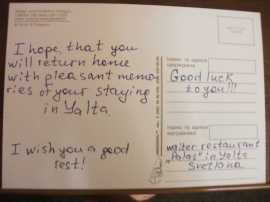 I hope that you
will return home
with pleasant memo-
ries of your staying
in Yalta.
I wish you a good
rest!
Good luck
to you!!!
waiter restaurant
"Palas" in Yalta
Svetlana